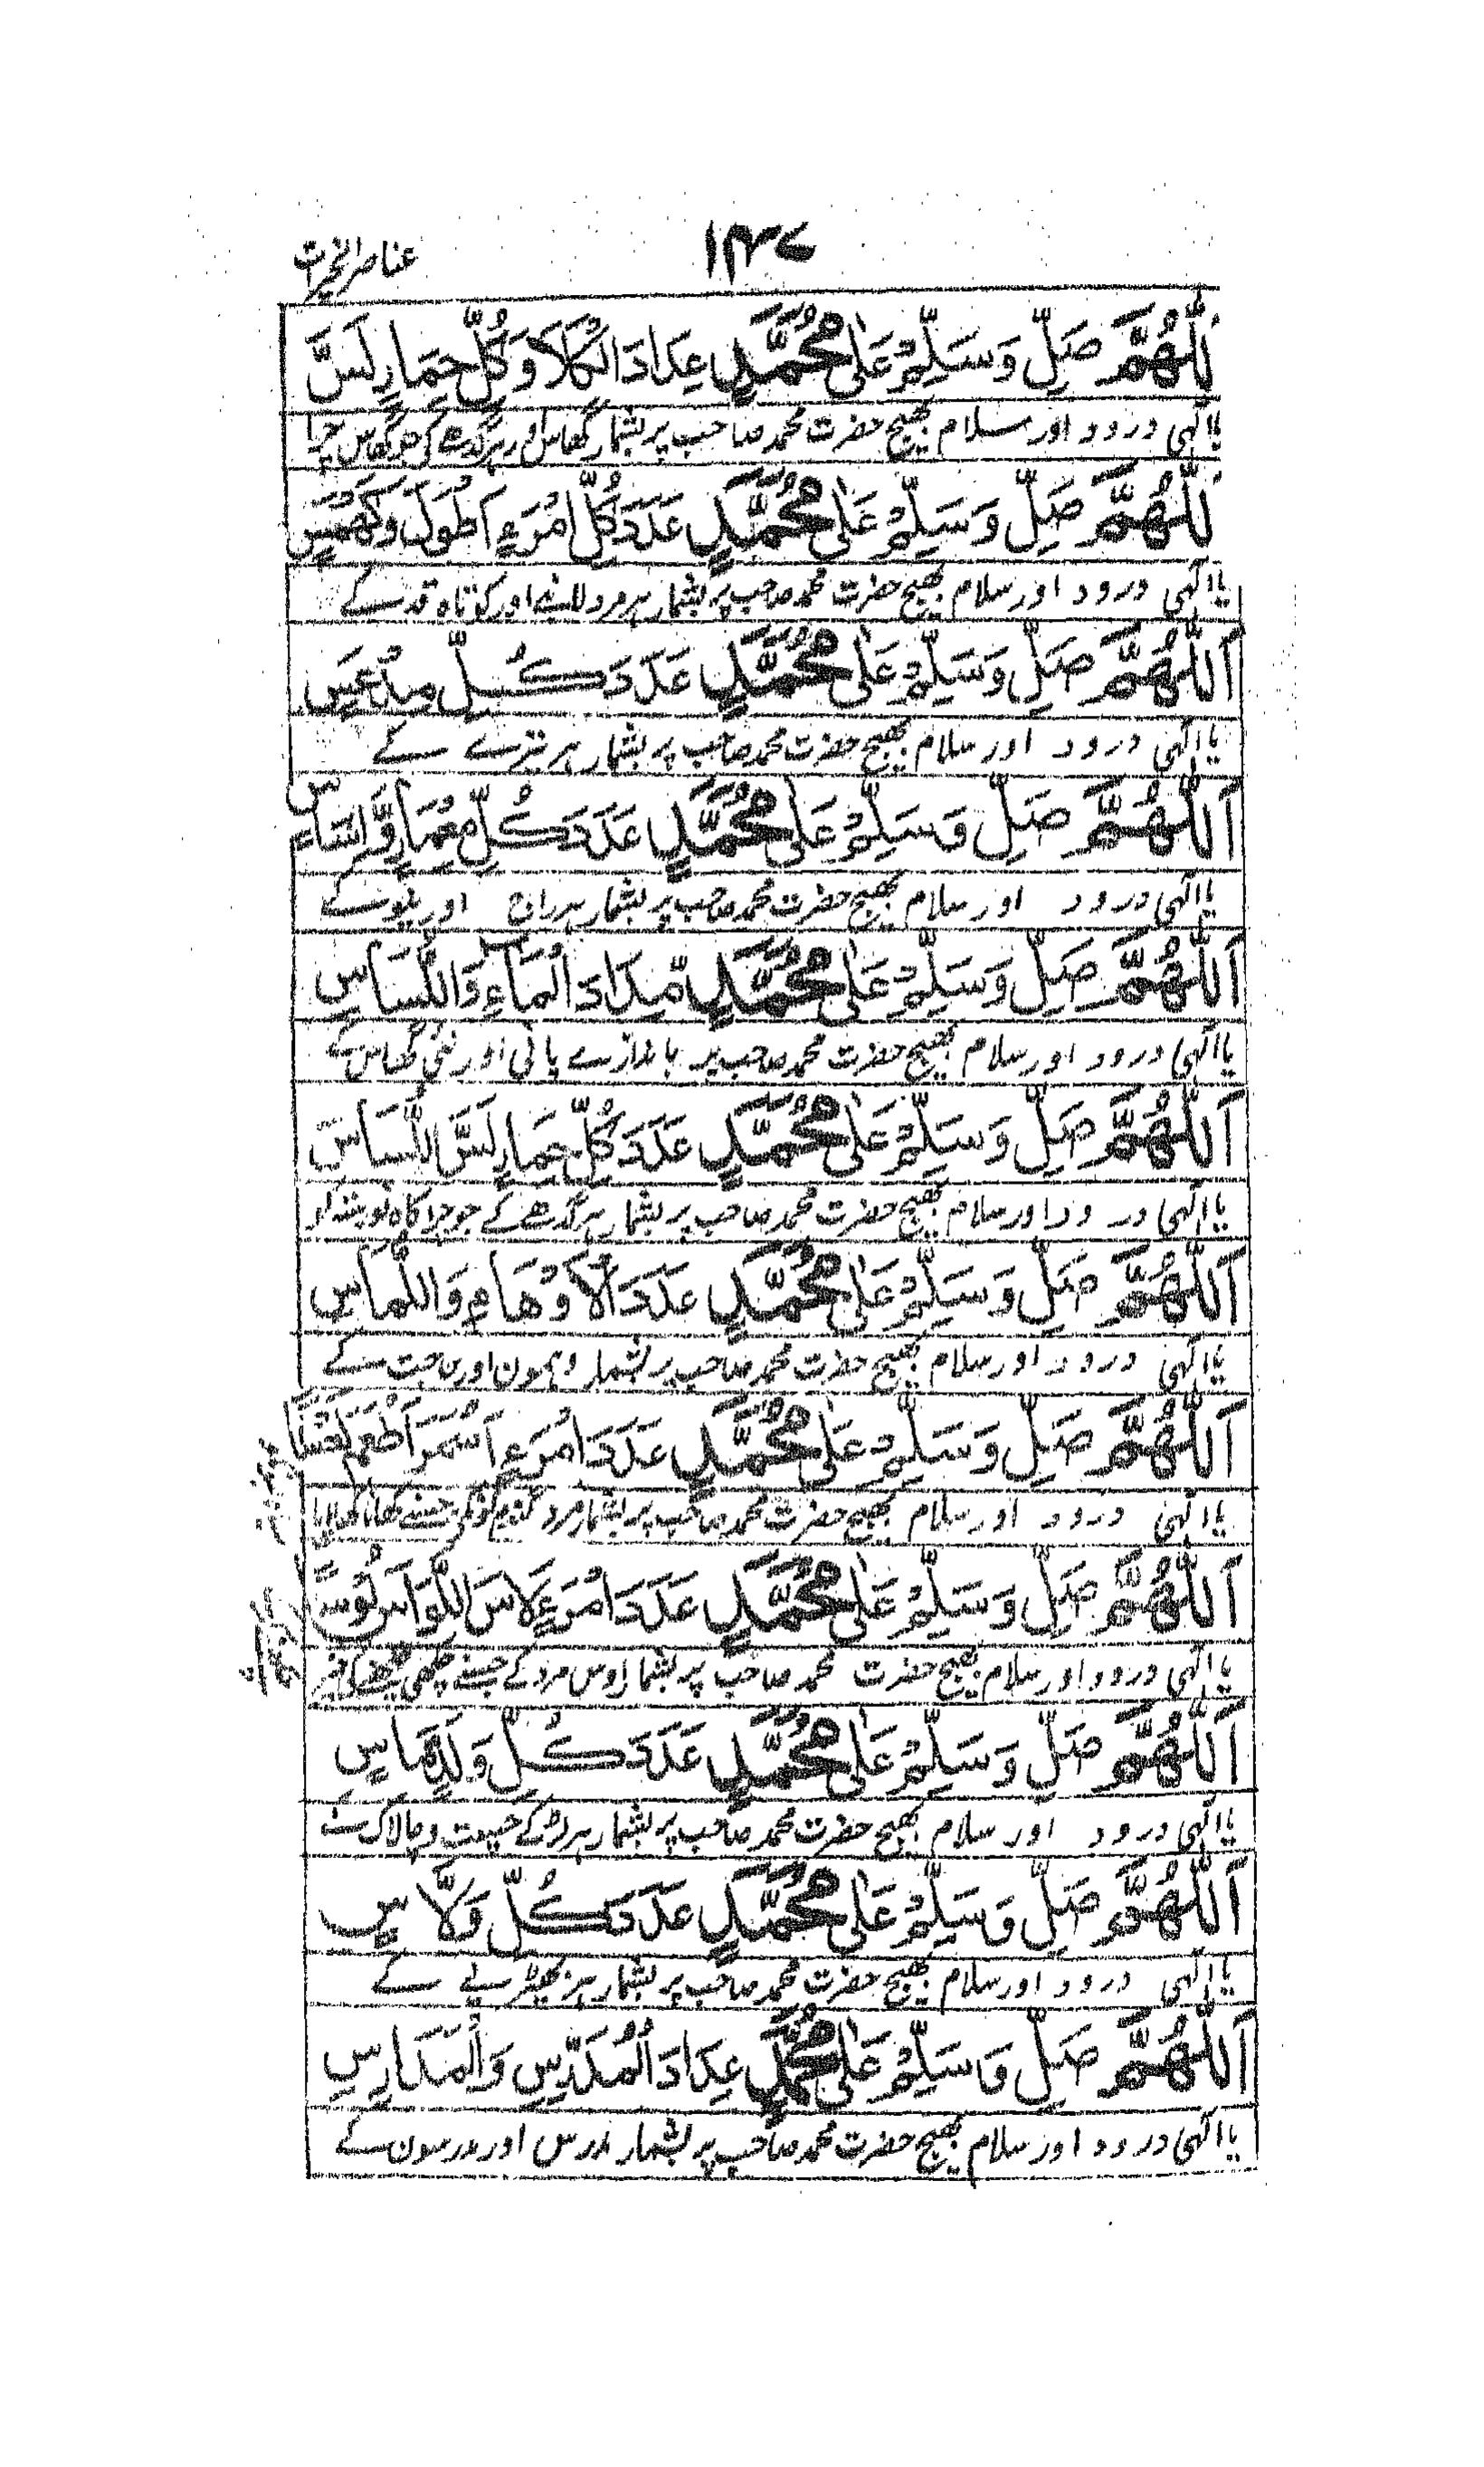 ۱۳۷
عناصر الخیرات
اَللّٰهُمَّ صَلِّ وَسَلِّمْ عَلٰی مُحَمَّدٍ عِدَادَ الْكَلَاَ وَكُلِّ حِمَارٍ لَسَّ
یا الٰہی درود اور سلام بھیج حضرت محمد صاحب پر بشمار گھاس اور ہر گدھے کی جو گھاس چرا
اَللّٰهُمَّ صَلِّ وَسَلِّمْ عَلٰی مُحَمَّدٍ عَدَدَ كُلِّ امْرَءٍ اَطْوَلَ وَكَهْمَسٍ
یا الٰہی درود اور سلام بھیج حضرت محمد صاحب پر بشمار ہر مرد لانبے اور کوتاہ قد کے
اَللّٰهُمَّ صَلِّ وَسَلِّمْ عَلٰی مُحَمَّدٍ عَدَدَ كُلِّ مِدْعَسٍ
یا الٰہی درود اور سلام بھیج حضرت محمد صاحب پر بشمار ہر نیزے کے
اَللّٰهُمَّ صَلِّ وَسَلِّمْ عَلٰی مُحَمَّدٍ عَدَدَ كُلِّ مِعْمَارٍ
یا الٰہی درود اور سلام بھیج حضرت محمد صاحب پر بشمار ہر راج اور نیو کے
اَللّٰهُمَّ صَلِّ وَسَلِّمْ عَلٰی مُحَمَّدٍ مِّدَادَ الْمَاءِ وَاللُّسَاسِ
یا الٰہی درود اور سلام بھیج حضرت محمد صاحب پر باندازے پانی اور نئی گھاس کے
اَللّٰهُمَّ صَلِّ وَسَلِّمْ عَلٰی مُحَمَّدٍ عَدَدَ كُلِّ حِمَارٍ لَسَّ اللُّسَاسَ
یا الٰہی درود اور سلام بھیج حضرت محمد صاحب پر بشمار ہر گدھے کے جو چرا کاہ
اَللّٰهُمَّ صَلِّ وَسَلِّمْ عَلٰی مُحَمَّدٍ عَدَدَ الْاَوْهَامِ وَاللُّمَاسِ
یا الٰہی درود اور سلام بھیج حضرت محمد صاحب پر بشمار وہمون اور حاجت کے
اَللّٰهُمَّ صَلِّ وَسَلِّمْ عَلٰی مُحَمَّدٍ عَدَدَ امْرَءٍ اَسْمَرَ اَطْعَمَ
یا الٰہی درود اور سلام بھیج حضرت محمد صاحب پر بشمار مرد گندم گون کی جسنے کھانا کھلایا
اَللّٰهُمَّ صَلِّ وَسَلِّمْ عَلٰی مُحَمَّدٍ عَدَدَ امْرَءٍ لَاسَ اللَّوَاسَ لَوْسًا
یا الٰہی درود اور سلام بھیج حضرت محمد صاحب پر بشمار اوس مرد کے جسنے چکھی
اَللّٰهُمَّ صَلِّ وَسَلِّمْ عَلٰی مُحَمَّدٍ عَدَدَ كُلِّ وَلَدٍ
یا الٰہی درود اور سلام بھیج حضرت محمد صاحب پر بشمار ہر لڑکے چست و چالاک کے
اَللّٰهُمَّ صَلِّ وَسَلِّمْ عَلٰی مُحَمَّدٍ عَدَدَ كُلِّ وَلَّاسٍ
یا الٰہی درود اور سلام بھیج حضرت محمد صاحب پر بشمار ہر بھیڑیے کے
اَللّٰهُمَّ صَلِّ وَسَلِّمْ عَلٰی مُحَمَّدٍ عِدَادَ الْمُدَرِّسِ وَالْمَدَارِسِ
یا الٰہی درود اور سلام بھیج حضرت محمد صاحب پر بشمار مدرس اور مدرسون کے